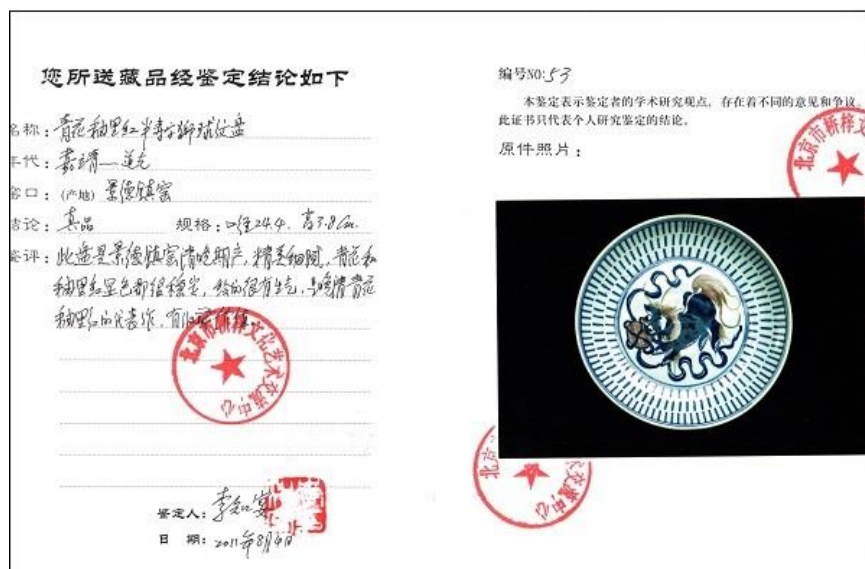 您所送藏品经鉴定结论如下
名称：青花釉里红半寿字狮球纹盘
年代：嘉靖—道光
窑口：(产地) 景德镇窑
结论：真品 规格：口径24.4. 高3.8Cm.
鉴评：此盘是景德镇窑清晚期产，精美细腻，青花和
釉里红呈色都很稳定，绘的很有生气，是晚清青花
釉里红的代表作，有收藏价值。
北京市析梓文化艺术交流中心
鉴定人：李知宴
日 期：2011年8月4日
编号NO:53
本鉴定表示鉴定者的学术研究观点，存在着不同的意见和争议。
此证书只代表个人研究鉴定的结论。
原件照片：
北京市析梓文
北京市
交流中心